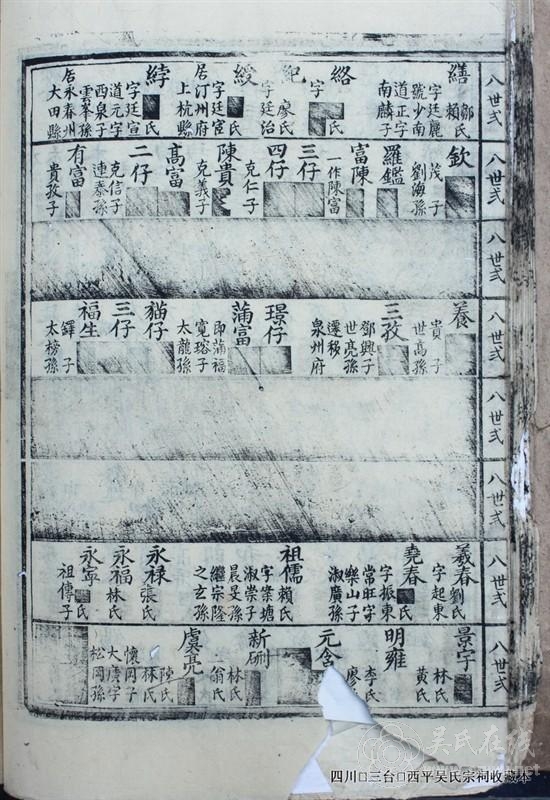 八世弍
繕 鄒氏 賴氏
字廷麗
號少南
道正字
南麟子
絡 字 氏
紀 廖氏
字廷治
綬 氏
字廷宦
居汀州府
上杭縣
綍 氏
字廷宣
道元字
西泉子
雲峯孫
居永春州
大田縣
八世弍
欽
茂 子
劉海孫
羅鑑
富陳
一作陳富
三仔
四仔
克仁子
陳貴
克義子
高富
二仔
克信子
連泰孫
有富
貴孜子
八世弍
八世弍
養
貴 子
世高孫
三孜
鄧興子
世亮孫
遷移
泉州府
璟仔
蒲富
即蒲福
寬瑢子
太龍孫
貓仔
三仔
福生
鐸 子
太榜孫
八世弍
八世弍
八世弍
羲春 劉氏
字起東
堯春 氏
字振東
常旺字
樂山子
淑廣孫
祖儒 賴氏
字崇塘
淑崇子
晨旻孫
繼宗隆
之玄孫
永祿 張氏
永福 林氏
永寧 氏
祖傳子
八世弍
景字 林氏
黃氏
明雍 李氏
廖氏
元含
新 林氏
翁氏
虞亮 陸氏
林氏
懷岡子
大廣字
松岡孫
吴氏在线
四川□三台□西平吴氏宗祠收藏本